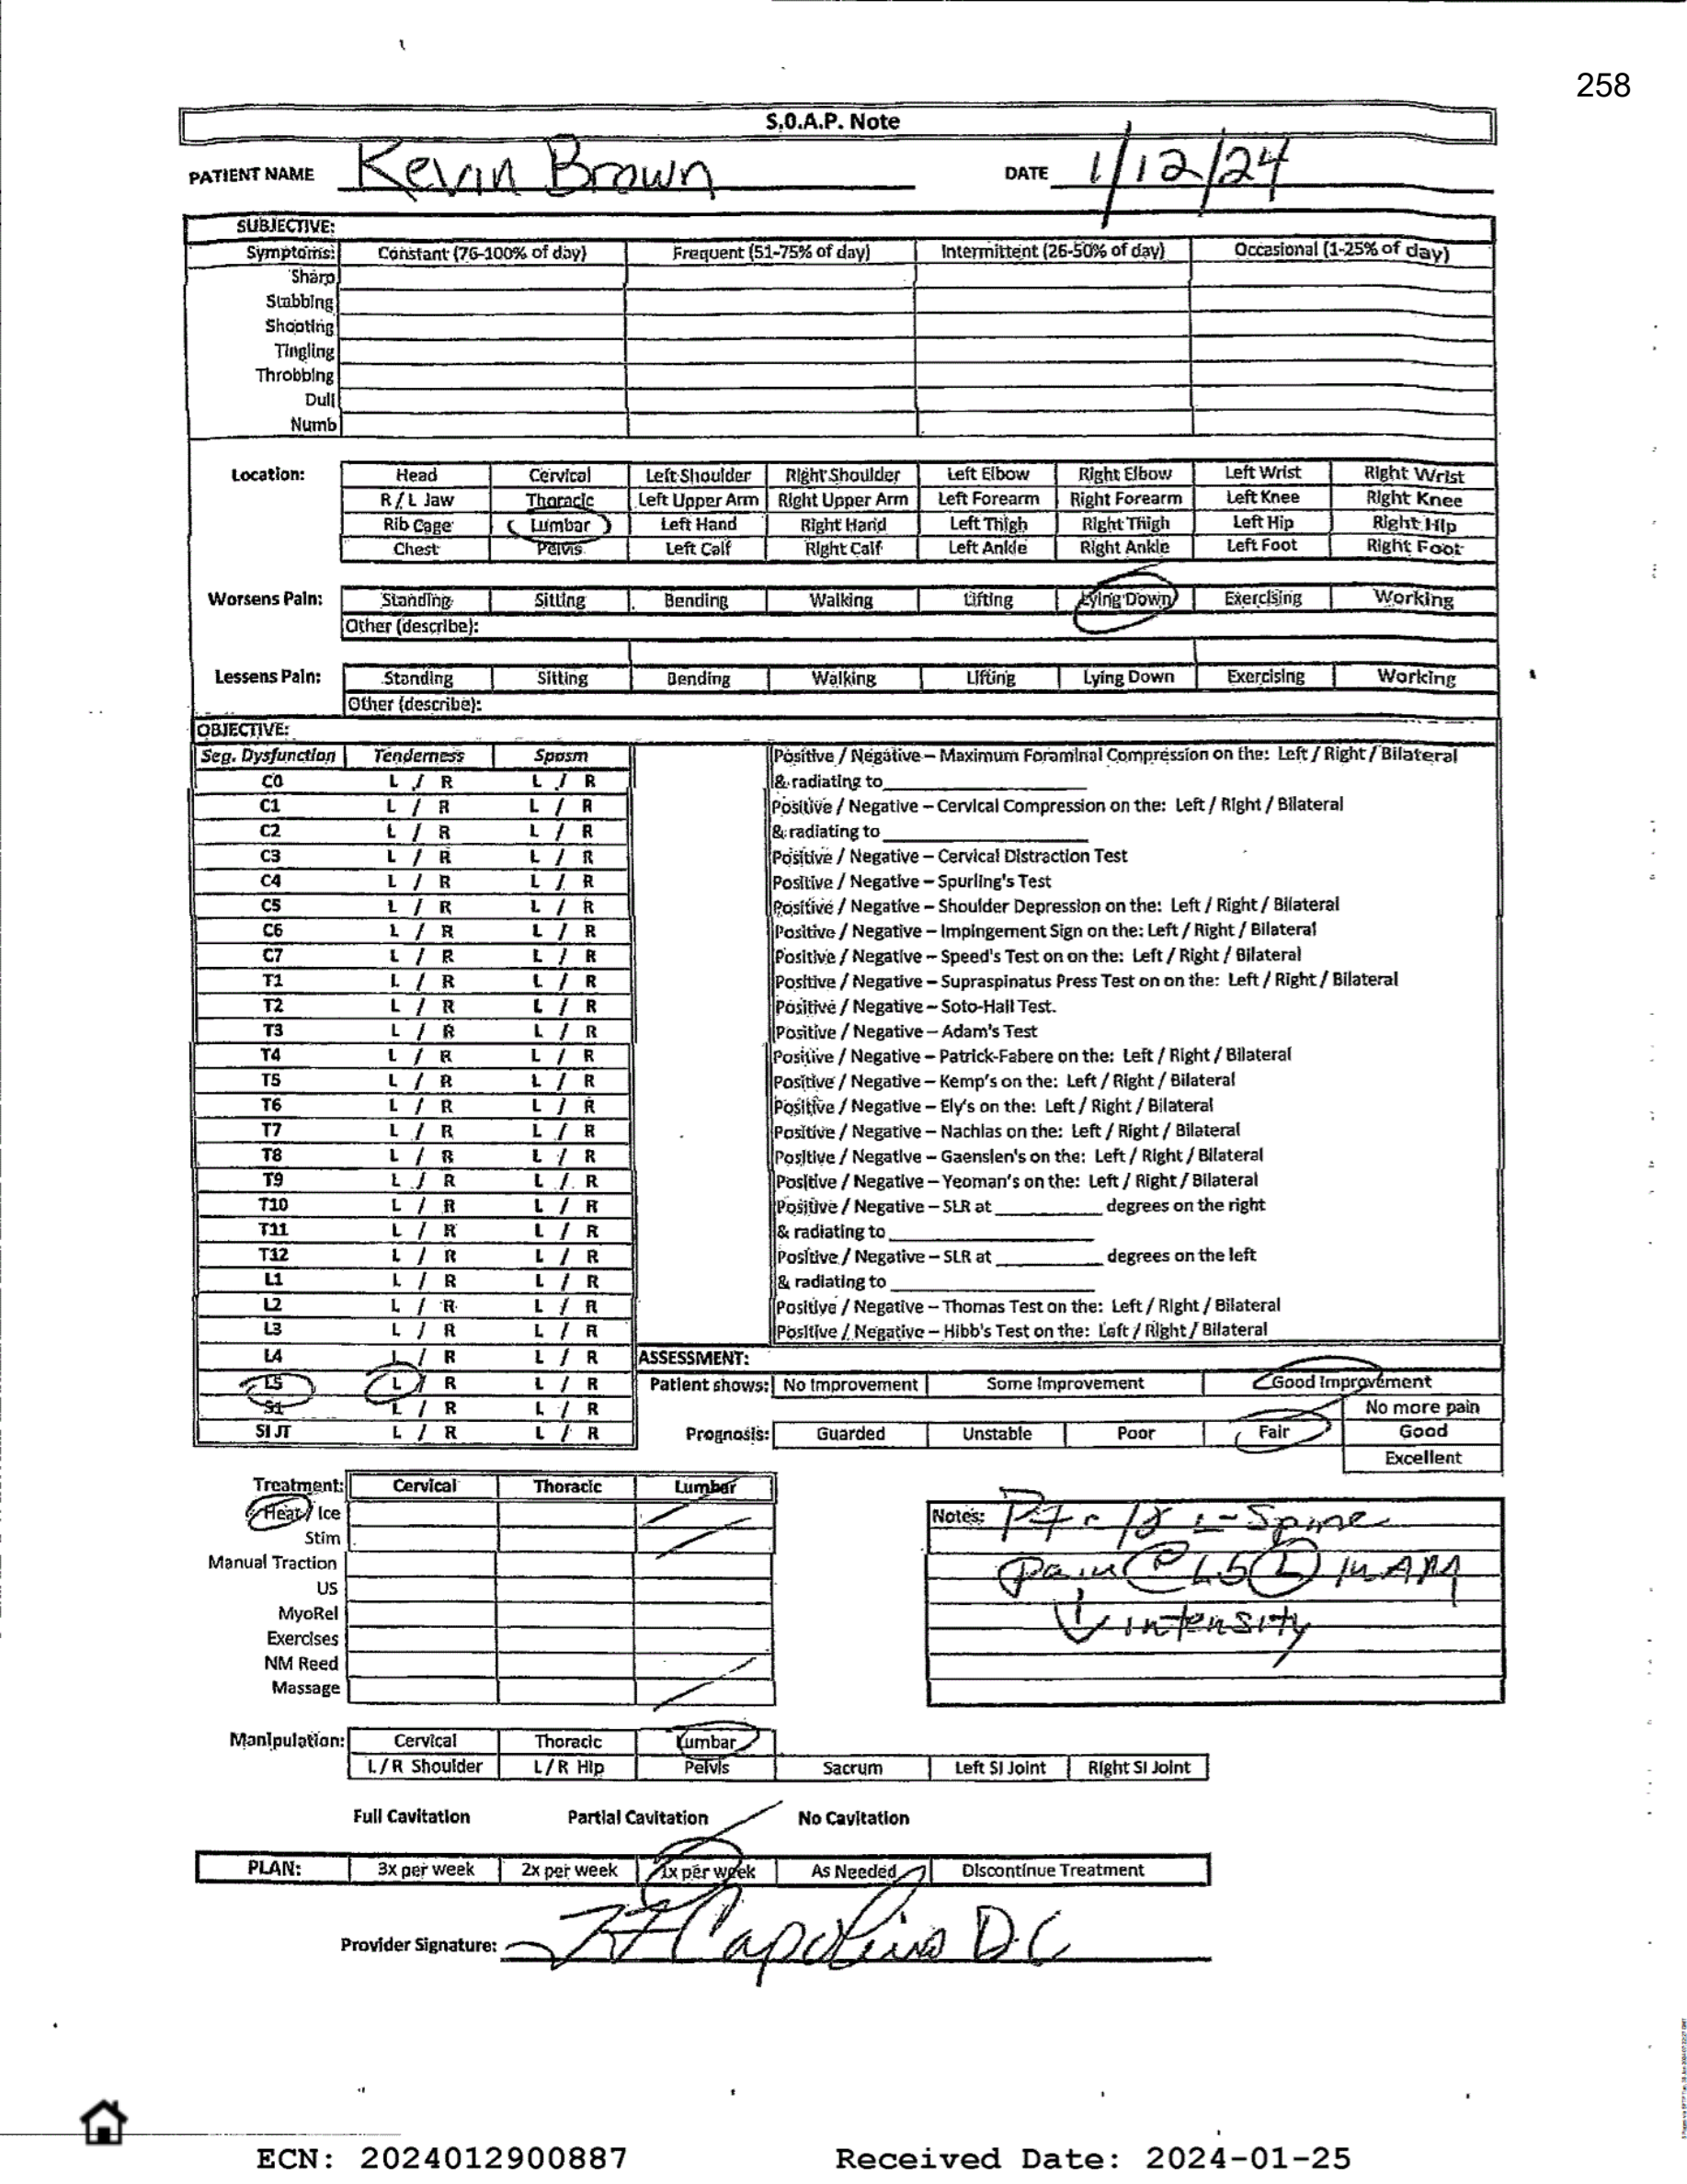 258
S.O.A.P. Note
PATIENT NAME Kevin Brown DATE 1/12/24
SUBJECTIVE:
Symptoms: Constant (76-100% of day) Frequent (51-75% of day) Intermittent (26-50% of day) Occasional (1-25% of day)
Sharp
Stabbing
Shooting
Tingling
Throbbing
Dull
Numb
Location: Head Cervical Left Shoulder Right Shoulder Left Elbow Right Elbow Left Wrist Right Wrist
R / L Jaw Thoracic Left Upper Arm Right Upper Arm Left Forearm Right Forearm Left Knee Right Knee
Rib Cage Lumbar Left Hand Right Hand Left Thigh Right Thigh Left Hip Right Hip
Chest Pelvis Left Calf Right Calf Left Ankle Right Ankle Left Foot Right Foot
Worsens Pain: Standing Sitting Bending Walking Lifting Lying Down Exercising Working
Other (describe):
Lessens Pain: Standing Sitting Bending Walking Lifting Lying Down Exercising Working
Other (describe):
OBJECTIVE:
Seg. Dysfunction Tenderness Spasm Positive / Negative – Maximum Foraminal Compression on the: Left / Right / Bilateral
C0 L / R L / R & radiating to
C1 L / R L / R Positive / Negative – Cervical Compression on the: Left / Right / Bilateral
C2 L / R L / R & radiating to
C3 L / R L / R Positive / Negative – Cervical Distraction Test
C4 L / R L / R Positive / Negative – Spurling's Test
C5 L / R L / R Positive / Negative – Shoulder Depression on the: Left / Right / Bilateral
C6 L / R L / R Positive / Negative – Impingement Sign on the: Left / Right / Bilateral
C7 L / R L / R Positive / Negative – Speed's Test on on the: Left / Right / Bilateral
T1 L / R L / R Positive / Negative – Supraspinatus Press Test on on the: Left / Right / Bilateral
T2 L / R L / R Positive / Negative – Soto-Hall Test.
T3 L / R L / R Positive / Negative – Adam's Test
T4 L / R L / R Positive / Negative – Patrick-Fabere on the: Left / Right / Bilateral
T5 L / R L / R Positive / Negative – Kemp's on the: Left / Right / Bilateral
T6 L / R L / R Positive / Negative – Ely's on the: Left / Right / Bilateral
T7 L / R L / R Positive / Negative – Nachlas on the: Left / Right / Bilateral
T8 L / R L / R Positive / Negative – Gaenslen's on the: Left / Right / Bilateral
T9 L / R L / R Positive / Negative – Yeoman's on the: Left / Right / Bilateral
T10 L / R L / R Positive / Negative – SLR at degrees on the right
T11 L / R L / R & radiating to
T12 L / R L / R Positive / Negative – SLR at degrees on the left
L1 L / R L / R & radiating to
L2 L / R L / R Positive / Negative – Thomas Test on the: Left / Right / Bilateral
L3 L / R L / R Positive / Negative – Hibb's Test on the: Left / Right / Bilateral
L4 L / R L / R ASSESSMENT:
L5 L / R L / R Patient shows: No Improvement Some Improvement Good Improvement
S1 L / R L / R No more pain
SI JT L / R L / R Prognosis: Guarded Unstable Poor Fair Good
Excellent
Treatment: Cervical Thoracic Lumbar
Heat / Ice
Stim
Manual Traction
US
MyoRel
Exercises
NM Reed
Massage
Notes: L-Spine
pain @ L5 L in AM
↓ intensity
Manipulation: Cervical Thoracic Lumbar
L / R Shoulder L / R Hip Pelvis Sacrum Left SI Joint Right SI Joint
Full Cavitation Partial Cavitation No Cavitation
PLAN: 3x per week 2x per week 1x per week As Needed Discontinue Treatment
Provider Signature: Capolino D.C
ECN: 2024012900887 Received Date: 2024-01-25